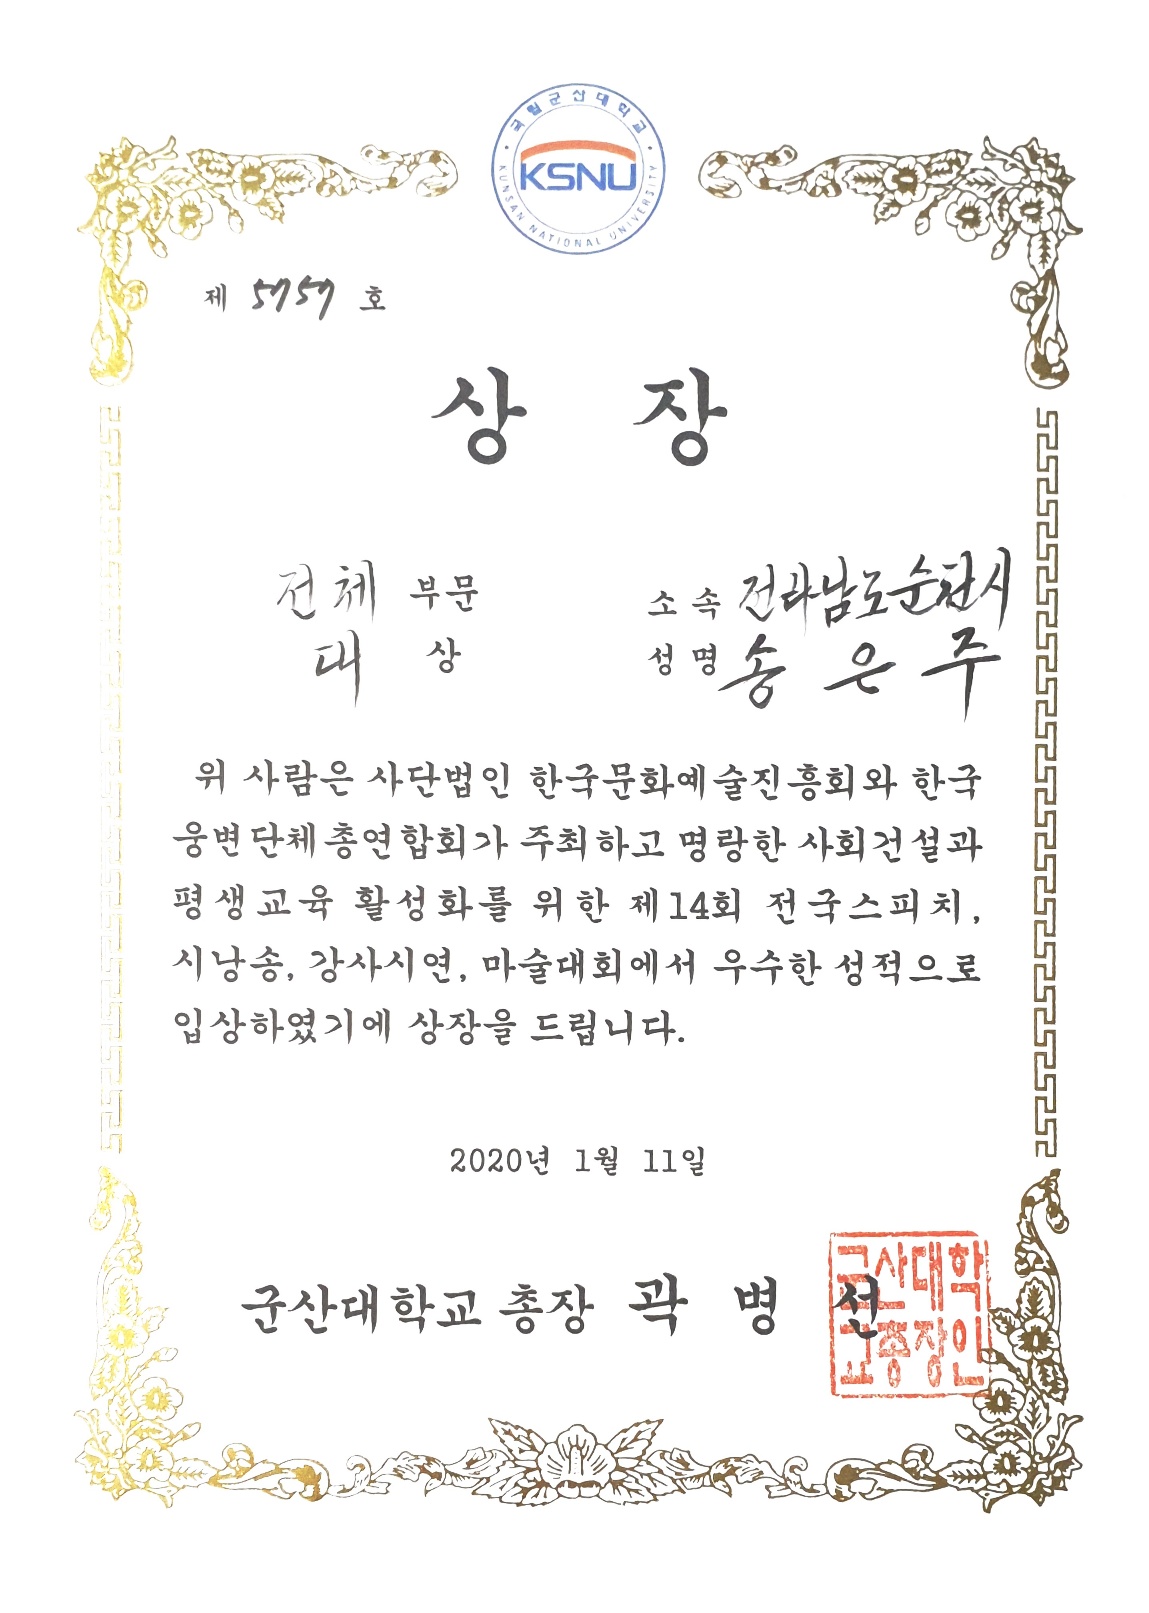 국립군산대학교
KSNU
KUNSAN NATIONAL UNIVERSITY
제 5757 호
상 장
전체 부문
대 상
소속 전라남도순천시
성명 송은주
위 사람은 사단법인 한국문화예술진흥회와 한국
웅변단체총연합회가 주최하고 명랑한 사회건설과
평생교육 활성화를 위한 제14회 전국스피치,
시낭송, 강사시연, 마술대회에서 우수한 성적으로
입상하였기에 상장을 드립니다.
2020년 1월 11일
군산대학교 총장 곽 병 선
군산대학
교총장인